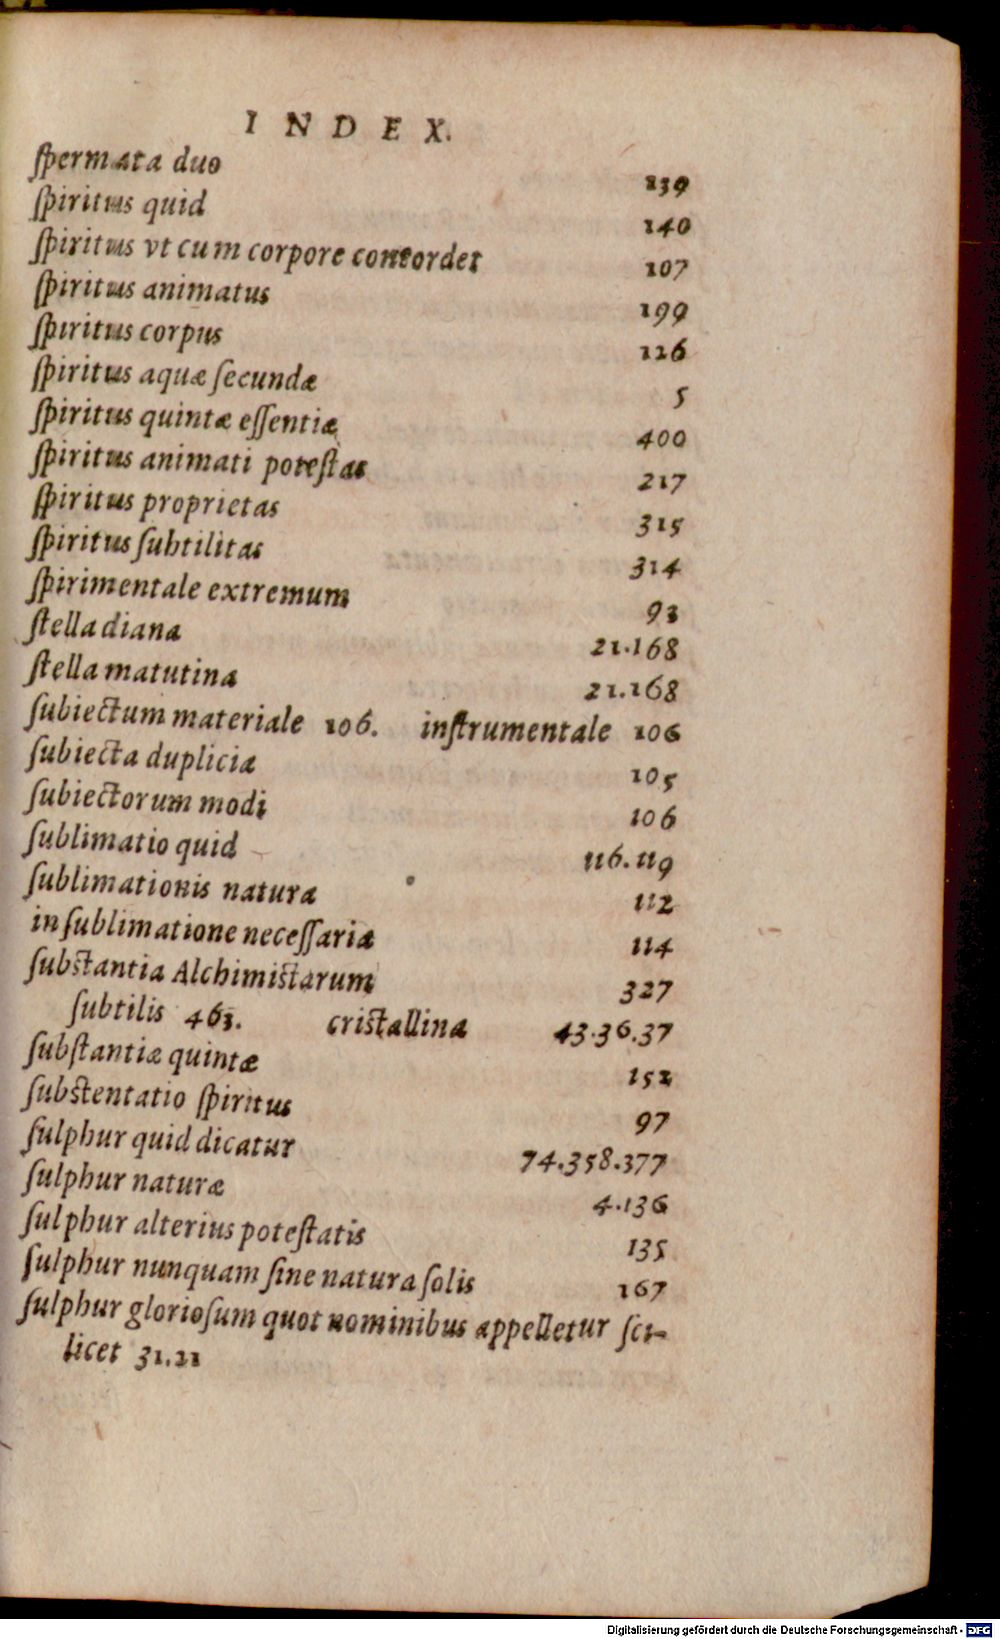 INDEX.
ſpermata duo 139
ſpiritus quid 140
ſpiritus vt cum corpore concordet 107
ſpiritus animatus 199
ſpiritus corpus 126
ſpiritus aquæ ſecundæ 5
ſpiritus quintæ eſſentiæ 400
ſpiritus animati poteſtas 217
ſpiritus proprietas 315
ſpiritus ſubtilitas 314
ſpirimentale extremum 93
ſtella diana 21.168
ſtella matutina 21.168
ſubiectum materiale 106. inſtrumentale 106
ſubiecta duplicia 105
ſubiectorum modi 106
ſublimatio quid 116.119
ſublimationis natura 112
in ſublimatione neceſſaria 114
ſubſtantia Alchimiſtarum 327
ſubtilis 463. criſtallina 43.36.37
ſubſtantiæ quintæ 152
ſubſtentatio ſpiritus 97
ſulphur quid dicatur 74.358.377
ſulphur naturæ 4.136
ſulphur alterius poteſtatis 135
ſulphur nunquam ſine natura ſolis 167
ſulphur glorioſum quot nominibus appelletur ſci-
licet 31.21
Digitalisierung gefördert durch die Deutsche Forschungsgemeinschaft - DFG